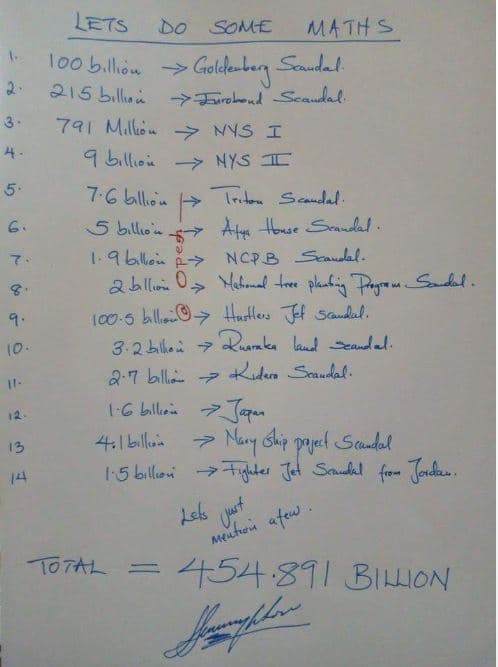 LETS DO SOME MATHS
1. 100 billion → Goldenberg Scandal.
2. 215 billion → Eurobond Scandal.
3. 791 Million → NYS I
4. 9 billion → NYS II
5. 7.6 billion → Triton Scandal.
6. 5 billion → Afya House Scandal.
7. 1.9 billion → NCPB Scandal.
8. 2 billion → National tree planting Program Scandal.
9. 100.5 billion → Hustlers Jet scandal.
10. 3.2 billion → Ruaraka land scandal.
11. 2.7 billion → Kidero Scandal.
12. 1.6 billion → Japan
13 4.1 billion → Navy Ship project Scandal
14 1.5 billion → Fighter Jet Scandal from Jordan.
Lets just
mention a few.
TOTAL = 454.891 BILLION